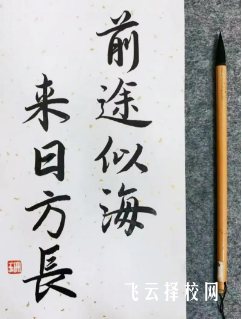 前途似海
来日方長
飞云择校网